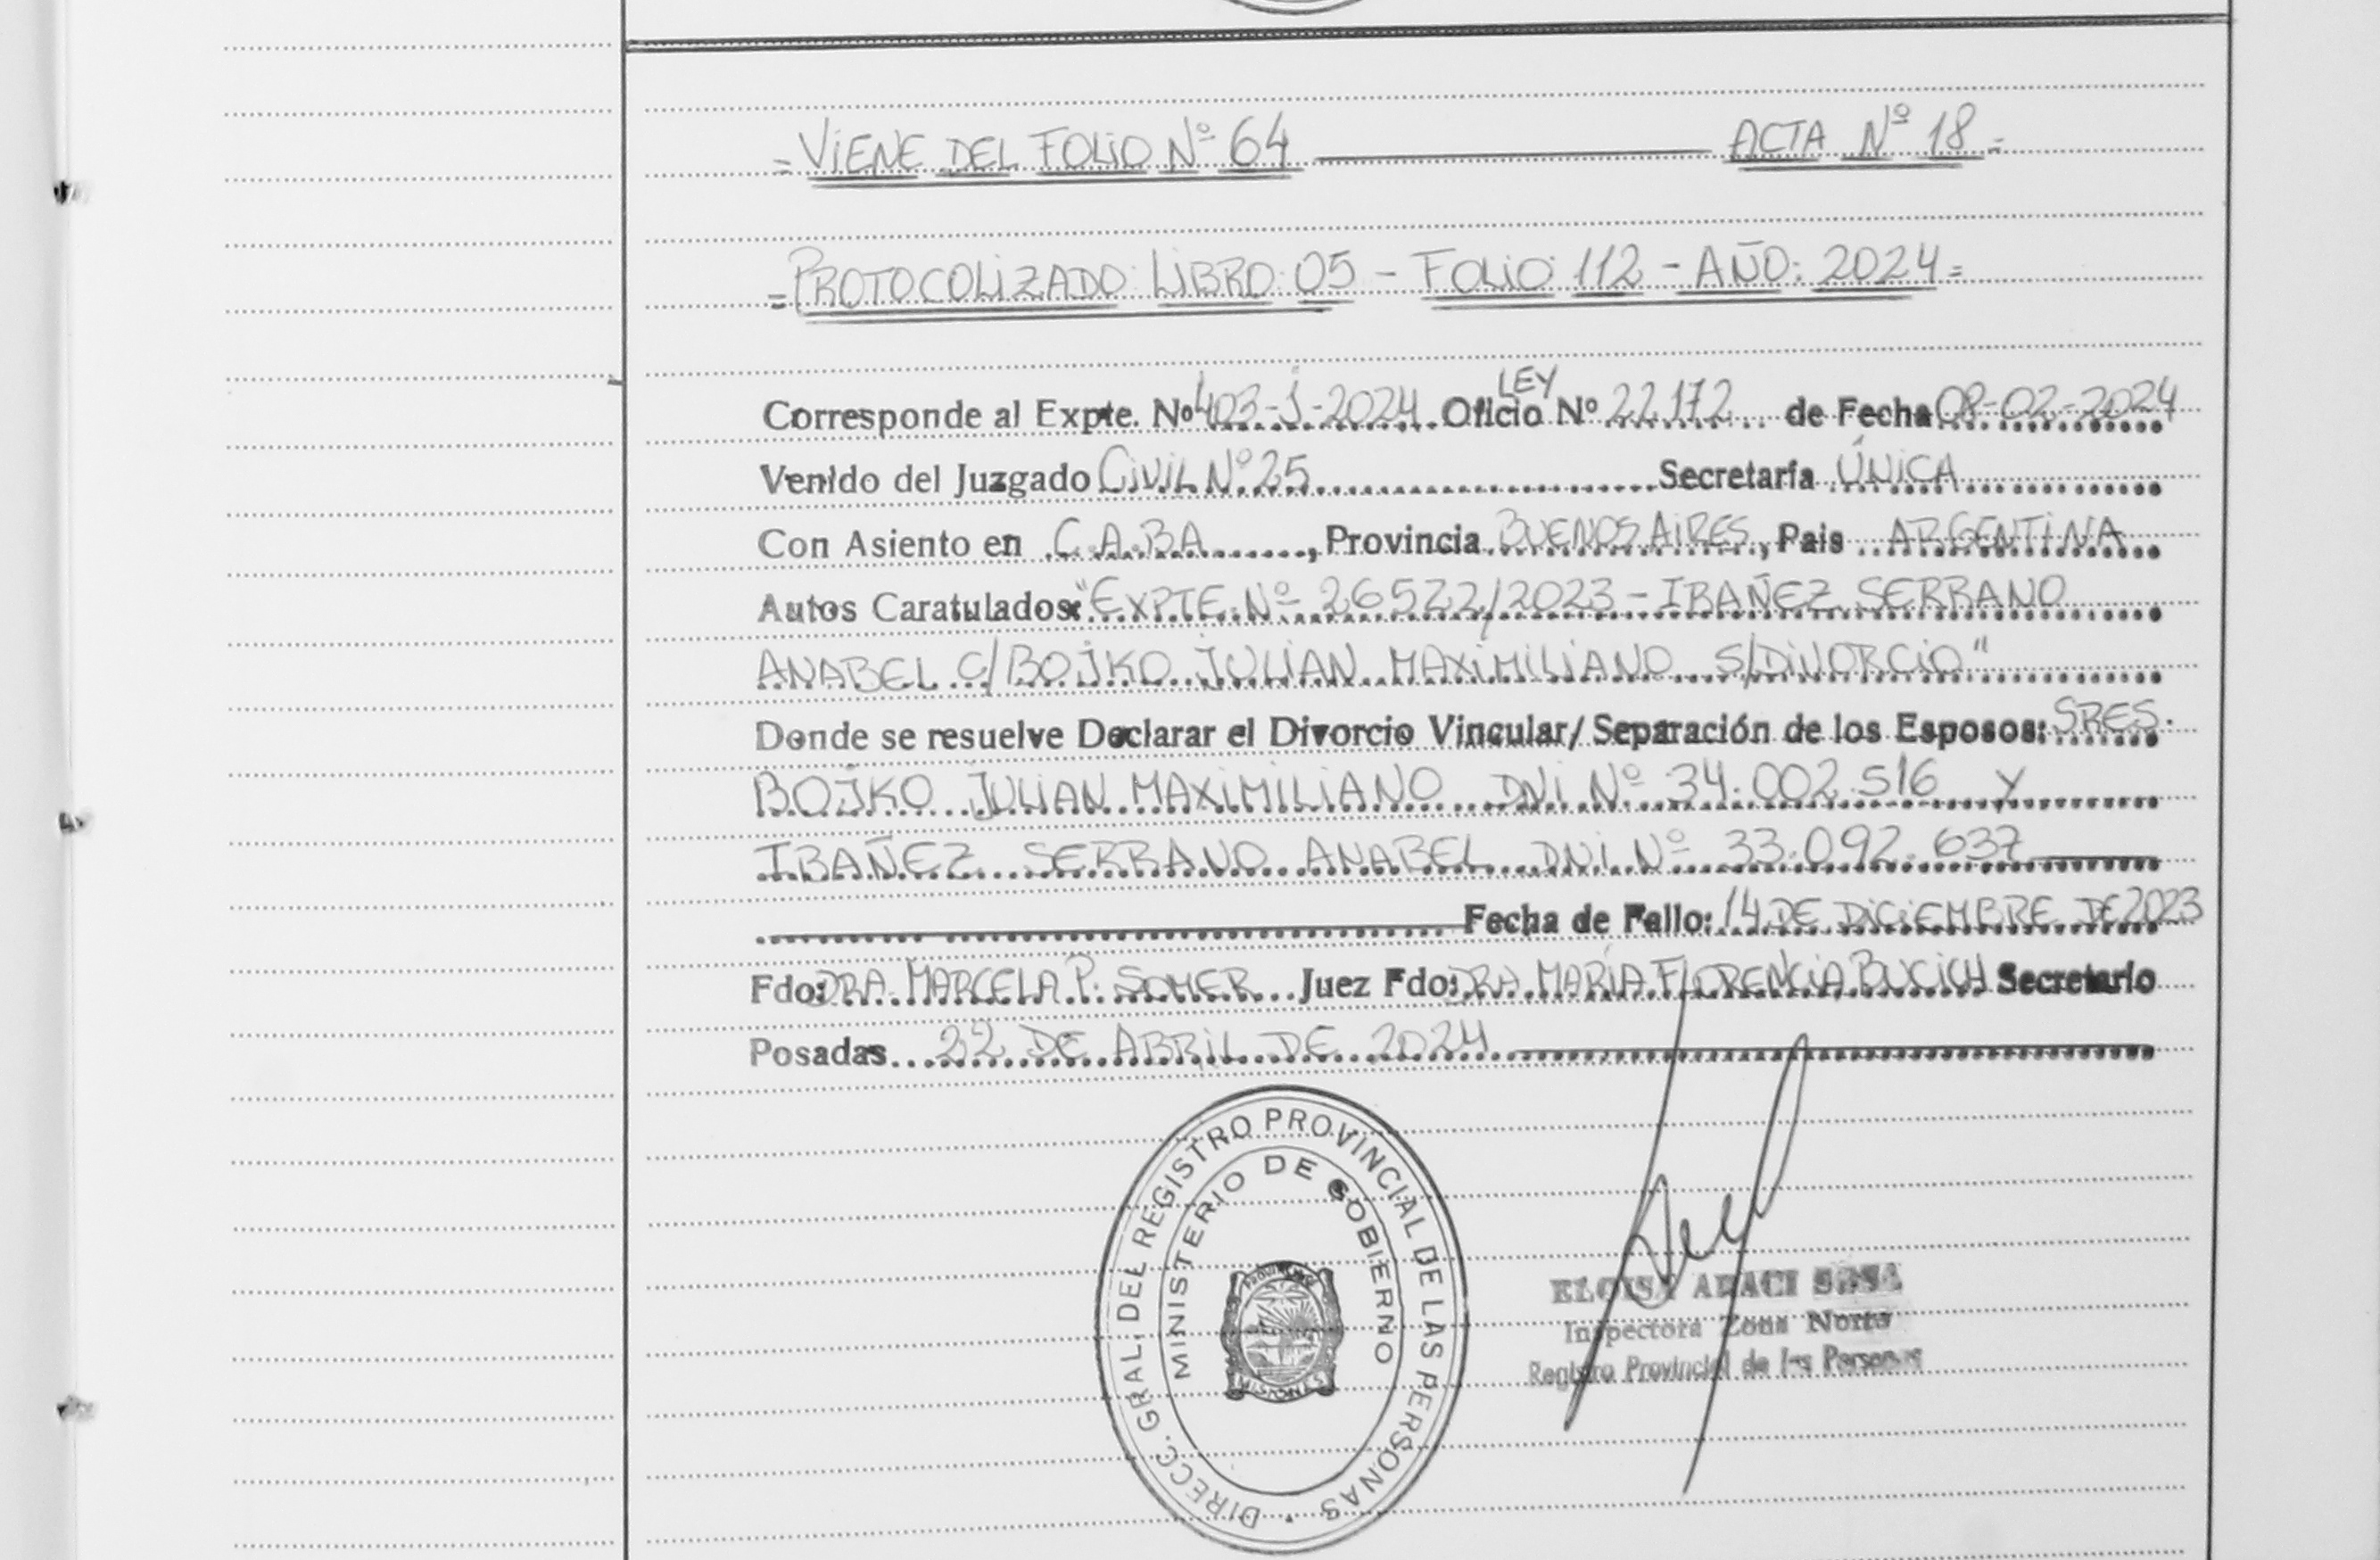 =VIENE DEL FOLIO Nº 64 ACTA Nº 18=
=PROTOCOLIZADO: LIBRO: 05 - FOLIO: 112 - AÑO: 2024=
LEY
Corresponde al Expte. Nº 403-J-2024 Oficio Nº 22172 de Fecha 08-02-2024
Venido del Juzgado CIVIL Nº 25 Secretaría ÚNICA
Con Asiento en C.A.B.A, Provincia BUENOS AIRES, Pais ARGENTINA
Autos Caratulados: "EXPTE. Nº 26522/2023 - IBAÑEZ SERRANO
ANABEL C/BOJKO JULIAN MAXIMILIANO S/DIVORCIO"
Donde se resuelve Declarar el Divorcio Vincular/Separación de los Esposos: SRES.
BOJKO JULIAN MAXIMILIANO DNI Nº 34.002.516 Y
IBAÑEZ SERRANO ANABEL DNI Nº 33.092.637
Fecha de Fallo: 14 DE DICIEMBRE DE 2023
Fdo: DRA. MARCELA P. SOMER Juez Fdo: DRA. MARÍA FLORENCIA BUCICH Secretario
Posadas 22 DE ABRIL DE 2024
DIRECC. GRAL. DEL REGISTRO PROVINCIAL DE LAS PERSONAS
MINISTERIO DE GOBIERNO
PROVINCIA
MISIONES
ELOISA ARACI
Inspectora Zona Norte
Registro Provincial de las Personas